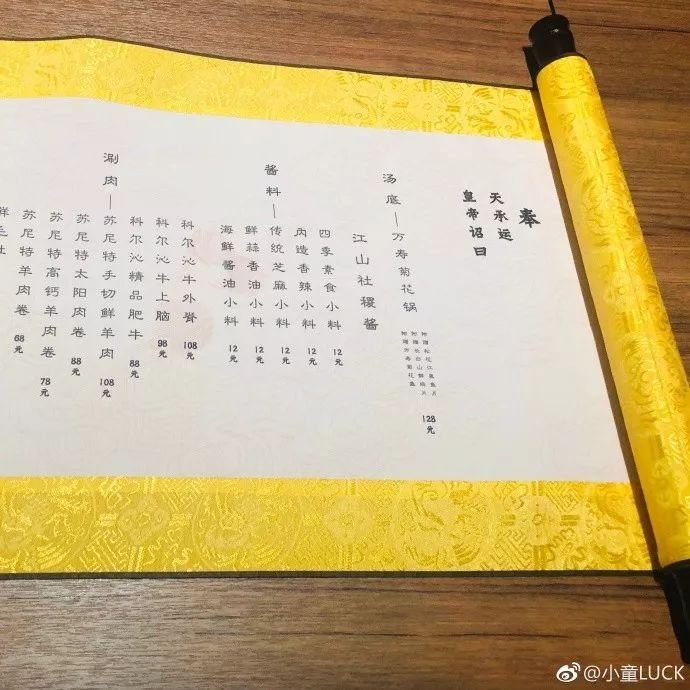 奉
天承运
皇帝诏曰
汤底—万寿菊花锅
128元
江山社稷酱
酱料—
四季素食小料
12元
内造香辣小料
12元
传统芝麻小料
12元
鲜蒜香油小料
12元
海鲜酱油小料
12元
涮肉—
科尔沁牛外脊
108元
科尔沁牛上脑
98元
科尔沁精品肥牛
88元
苏尼特手切鲜羊肉
108元
苏尼特太阳肉卷
88元
苏尼特高钙羊肉卷
78元
苏尼特羊肉卷
68元
@小童LUCK